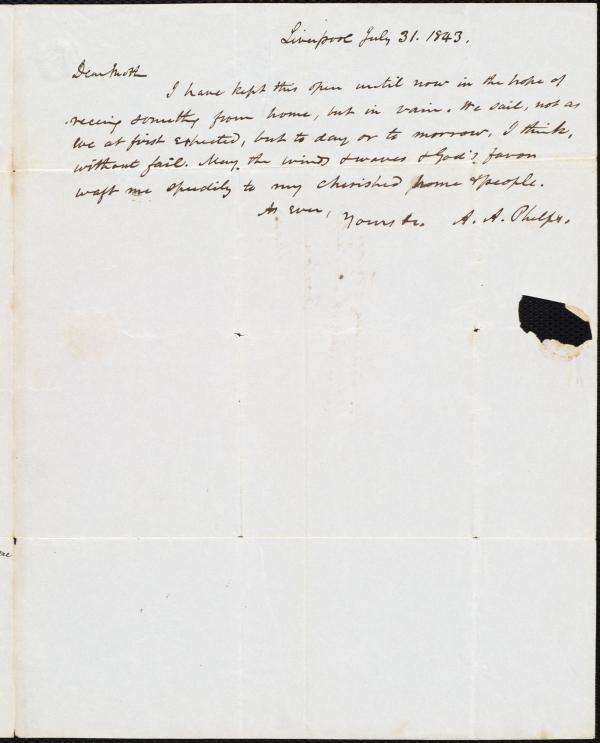 Liverpool July 31. 1843.
Dear Moth
I have kept this open until now in the hope of
receing somethg from home, but in vain. We sail, not as
we at first expected, but to day or to morrow, I think,
without fail. May the winds & waves & God's favor
waft me speedily to my cherished home & people.
As ever,
Yours &c. A. A. Phelps.